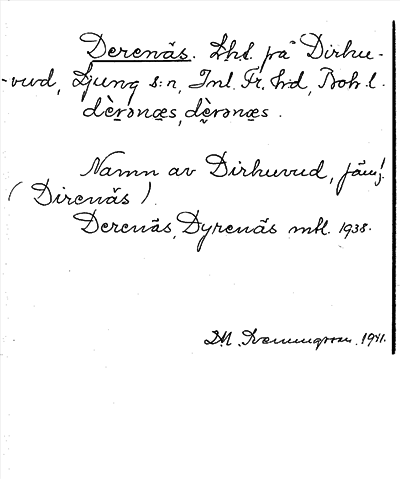 Derenäs. Lht. på Dirhu-
-vud, Ljung s:n, Inl. Fr. hd, Boh. l.
dèr̥ənæs, dèr̥ənæs.
Namn av Dirhuvud, jämf.
(Direnäs).
Derenäs, Dyrenäs mtl. 1938.
1941.